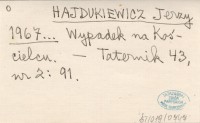 O
HAJDUKIEWICZ Jerzy
1967... Wypadek na Koś-
cielcu. — Taternik 43,
nr 2: 91.